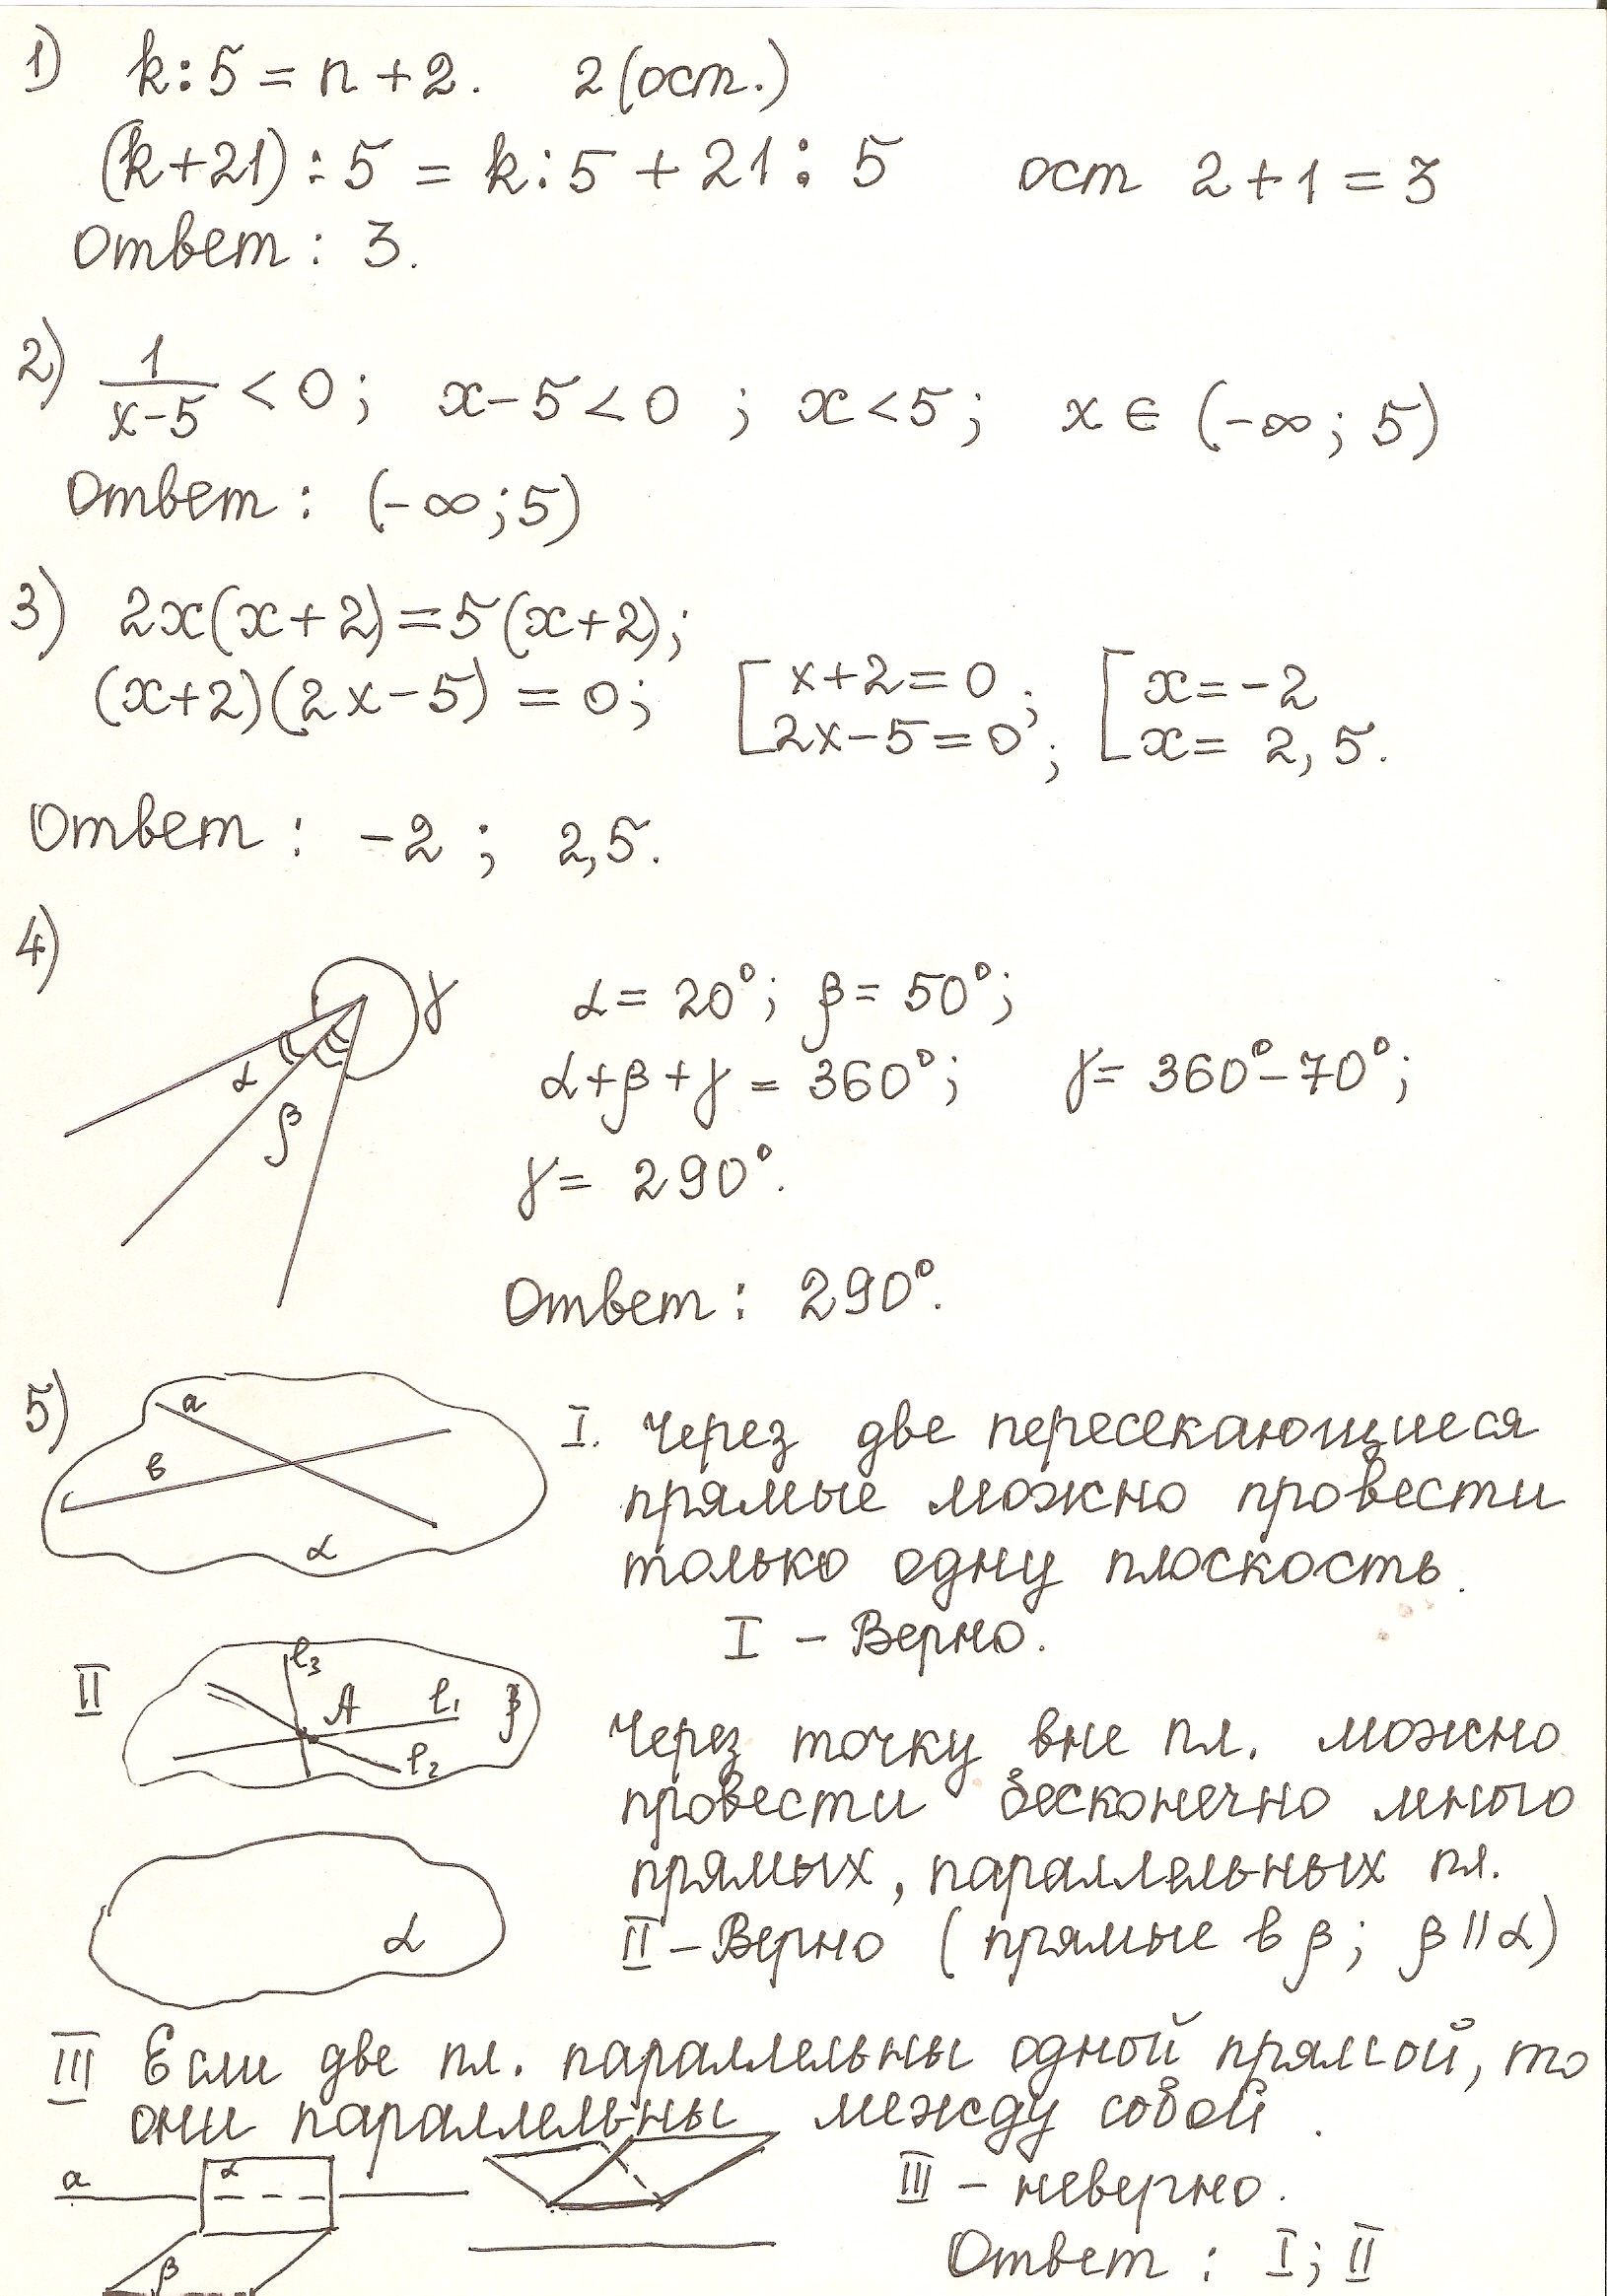 1) k:5 = n+2. 2(ост.)
(k+21):5 = k:5+21:5 ост 2+1=3
Ответ: 3.
2) 1/(x-5) < 0; x-5<0; x<5; x ∈ (-∞; 5)
Ответ: (-∞; 5)
3) 2x(x+2)=5(x+2);
(x+2)(2x-5) = 0; [x+2=0; [x=-2
2x-5=0; x= 2,5.
Ответ: -2; 2,5.
4)
γ α = 20°; β = 50°;
α α+β+γ = 360°; γ = 360°-70°;
β
γ = 290°.
Ответ: 290°.
5) a I. Через две пересекающиеся
в прямые можно провести
α только одну плоскость.
I - Верно.
II l₃ A l₁ β
l₂ Через точку вне пл. можно
провести бесконечно много
прямых, параллельных пл.
α II - Верно (прямые в β; β || α)
III Если две пл. параллельны одной прямой, то
они параллельны между собой.
a α III - неверно.
β Ответ: I; II